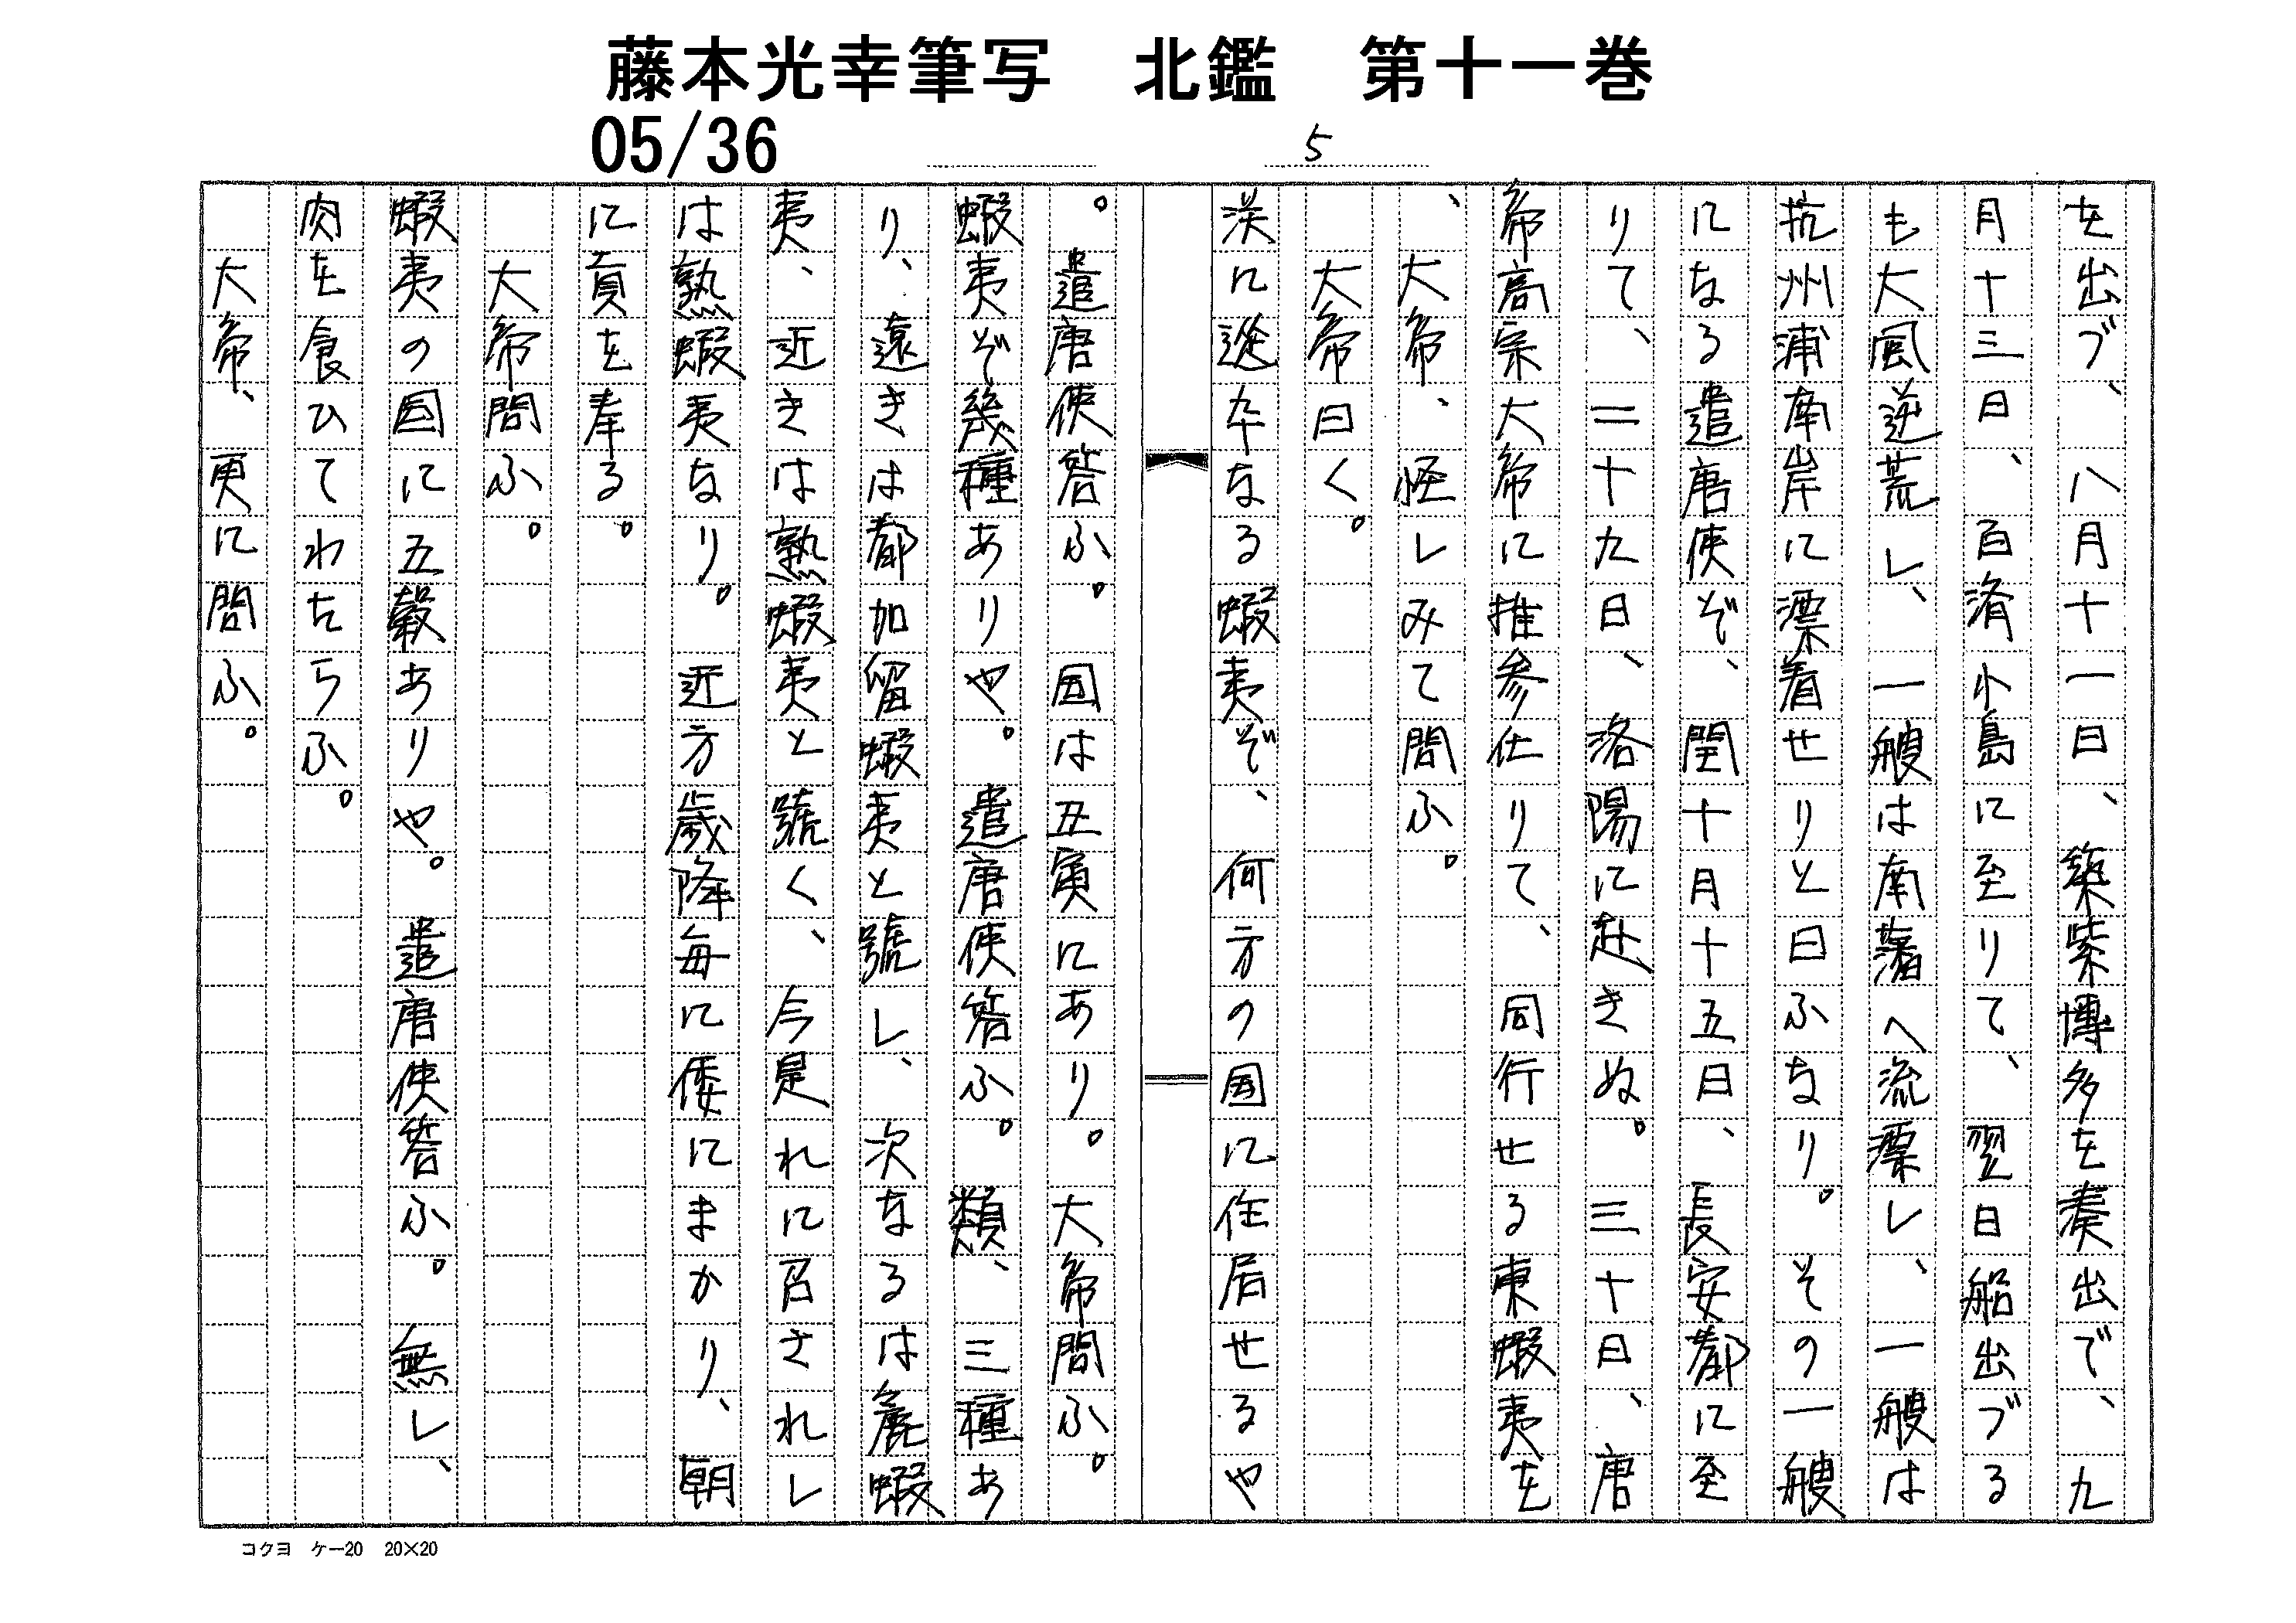 藤本光幸筆写　北鑑　第十一巻
05/36
5
を出づ、八月十一日、築紫博多を奏出で、九
月十三日、百済小島に至りて、翌日船出づる
も大風逆荒し、一艘は南藩へ流漂し、一艘は
抗州浦南岸に漂着せりと曰ふなり。その一艘
になる遣唐使ぞ、閏十月十五日、長安都に至
りて、二十九日、洛陽に赴きぬ。三十日、唐
帝高宗大帝に推参仕りて、同行せる東蝦夷を
、大帝、怪しみて問ふ。
大帝曰く。
渓に逆卆なる蝦夷ぞ、何方の国に住居せるや
。遣唐使答ふ。国は丑寅にあり。大帝問ふ。
蝦夷ぞ幾種ありや。遣唐使答ふ。類、三種あ
り、遠きは都加留蝦夷と號し、次なるは麁蝦
夷、近きは熟蝦夷と號く、今是れに召されし
は熟蝦夷なり。近方歳降毎に倭にまかり、朝
に貢を奉る。
大帝問ふ。
蝦夷の国に五穀ありや。遣唐使答ふ。無し、
肉を食ひてわたらふ。
大帝、更に問ふ。
コクヨ　ケー20　20×20